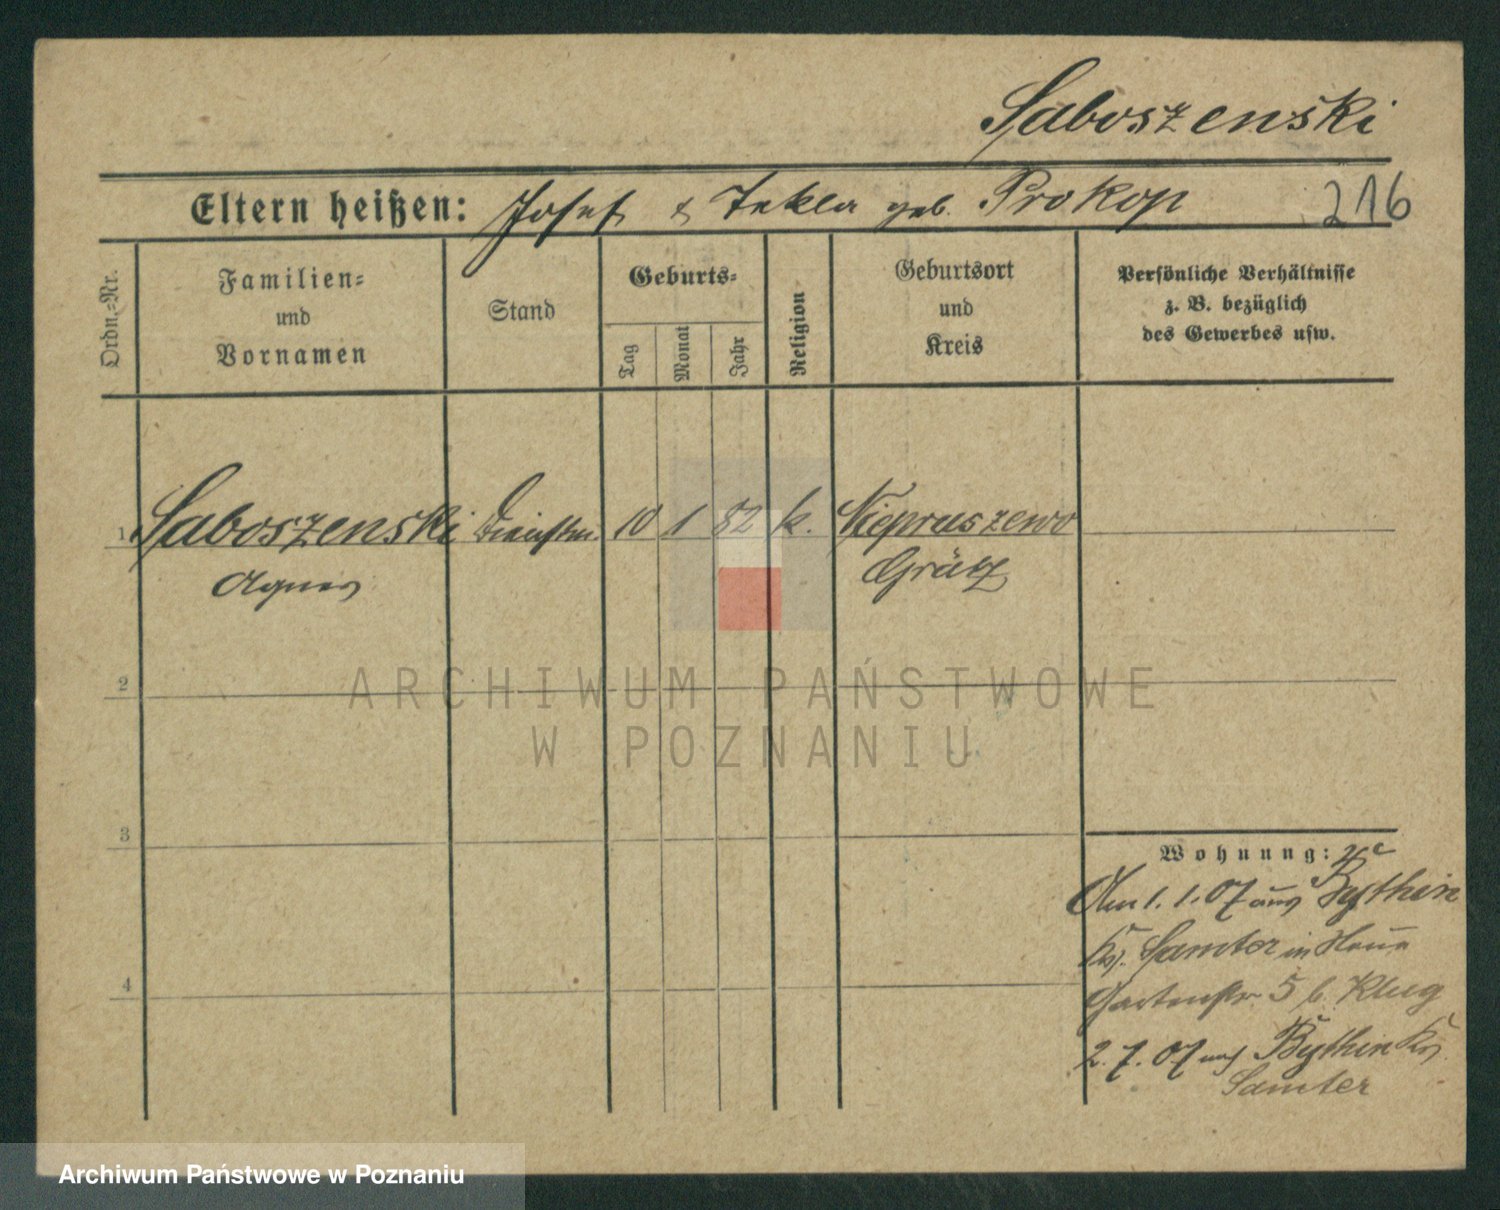 Saboszenski
Eltern heißen: Josef & Tekla geb. Prokop 216
Ordn.=Nr.
Familien=
und
Vornamen
Stand
Geburts=
Tag
Monat
Jahr
Religion
Geburtsort
und
Kreis
Persönliche Verhältnisse
z. B. bezüglich
des Gewerbes usw.
1 Saboszenski Dienstm. 10 1 82 k. Niepruszewo
Agnes Grätz
2
ARCHIWUM PAŃSTWOWE
W POZNANIU
3
Wohnung:
Am 1.1.07 aus Bythin
Kr. Samter in Neue
Gartenstr. 5 b. Klug
2.7.07 nach Bythin Kr.
Samter
4
Archiwum Państwowe w Poznaniu